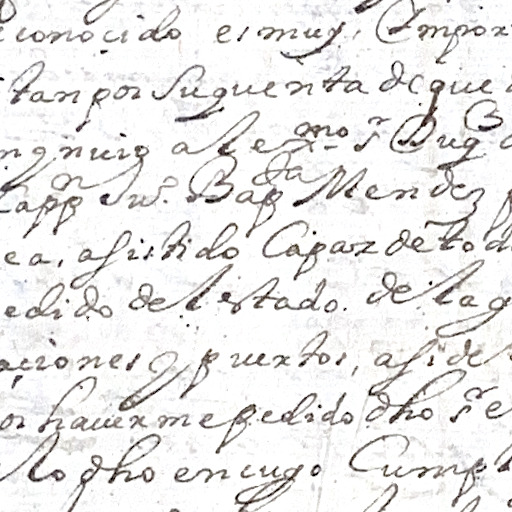 conocido es muy, Impor
tan por su quenta de que
al exmo sr Duq
Capp n Ju. Bapta Mendez
ea, asistido Capaz de to d
edido del estado de la g
aciones y puertos, asi de
or haverme pedido dho sr e
lo dho en cuyo Cump